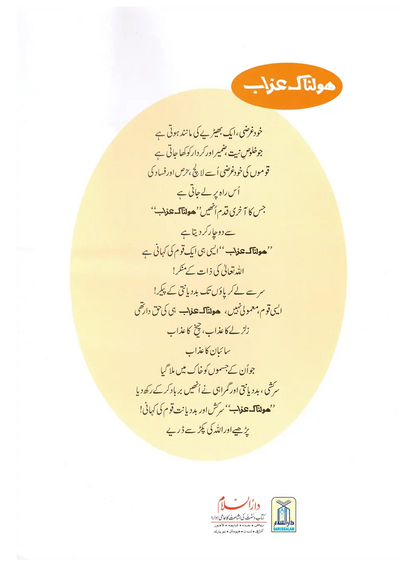 ھولناک عذاب
خودغرضی، ایک بھیڑیے کی مانند ہوتی ہے
جو خلوصِ نیت، ضمیر اور کردار کو کھا جاتی ہے
قوموں کی خودغرضی اُسے لالچ، حرص اور فساد کی
اُس راہ پر لے جاتی ہے
جس کا آخری قدم اُنھیں "ھولناک عذاب"
سے دوچار کر دیتا ہے
"ھولناک عذاب" ایسی ہی ایک قوم کی کہانی ہے
اللہ تعالیٰ کی ذات کے منکر!
سر سے لے کر پاؤں تک بددیانتی کے پیکر!
ایسی قوم معمولی نہیں، ھولناک عذاب ہی کی حق دار تھی
زلزلے کا عذاب، چیخ کا عذاب
سائبان کا عذاب
جو اُن کے جسموں کو خاک میں ملا گیا
سرکشی، بددیانتی اور گمراہی نے اُنھیں برباد کر کے رکھ دیا
"ھولناک عذاب" سرکش اور بددیانت قوم کی کہانی!
پڑھیے اور اللہ کی پکڑ سے ڈریے
دارالسلام
کتاب و سنت کی اشاعت کا عالمی ادارہ
دارالسلام
DARUSSALAM